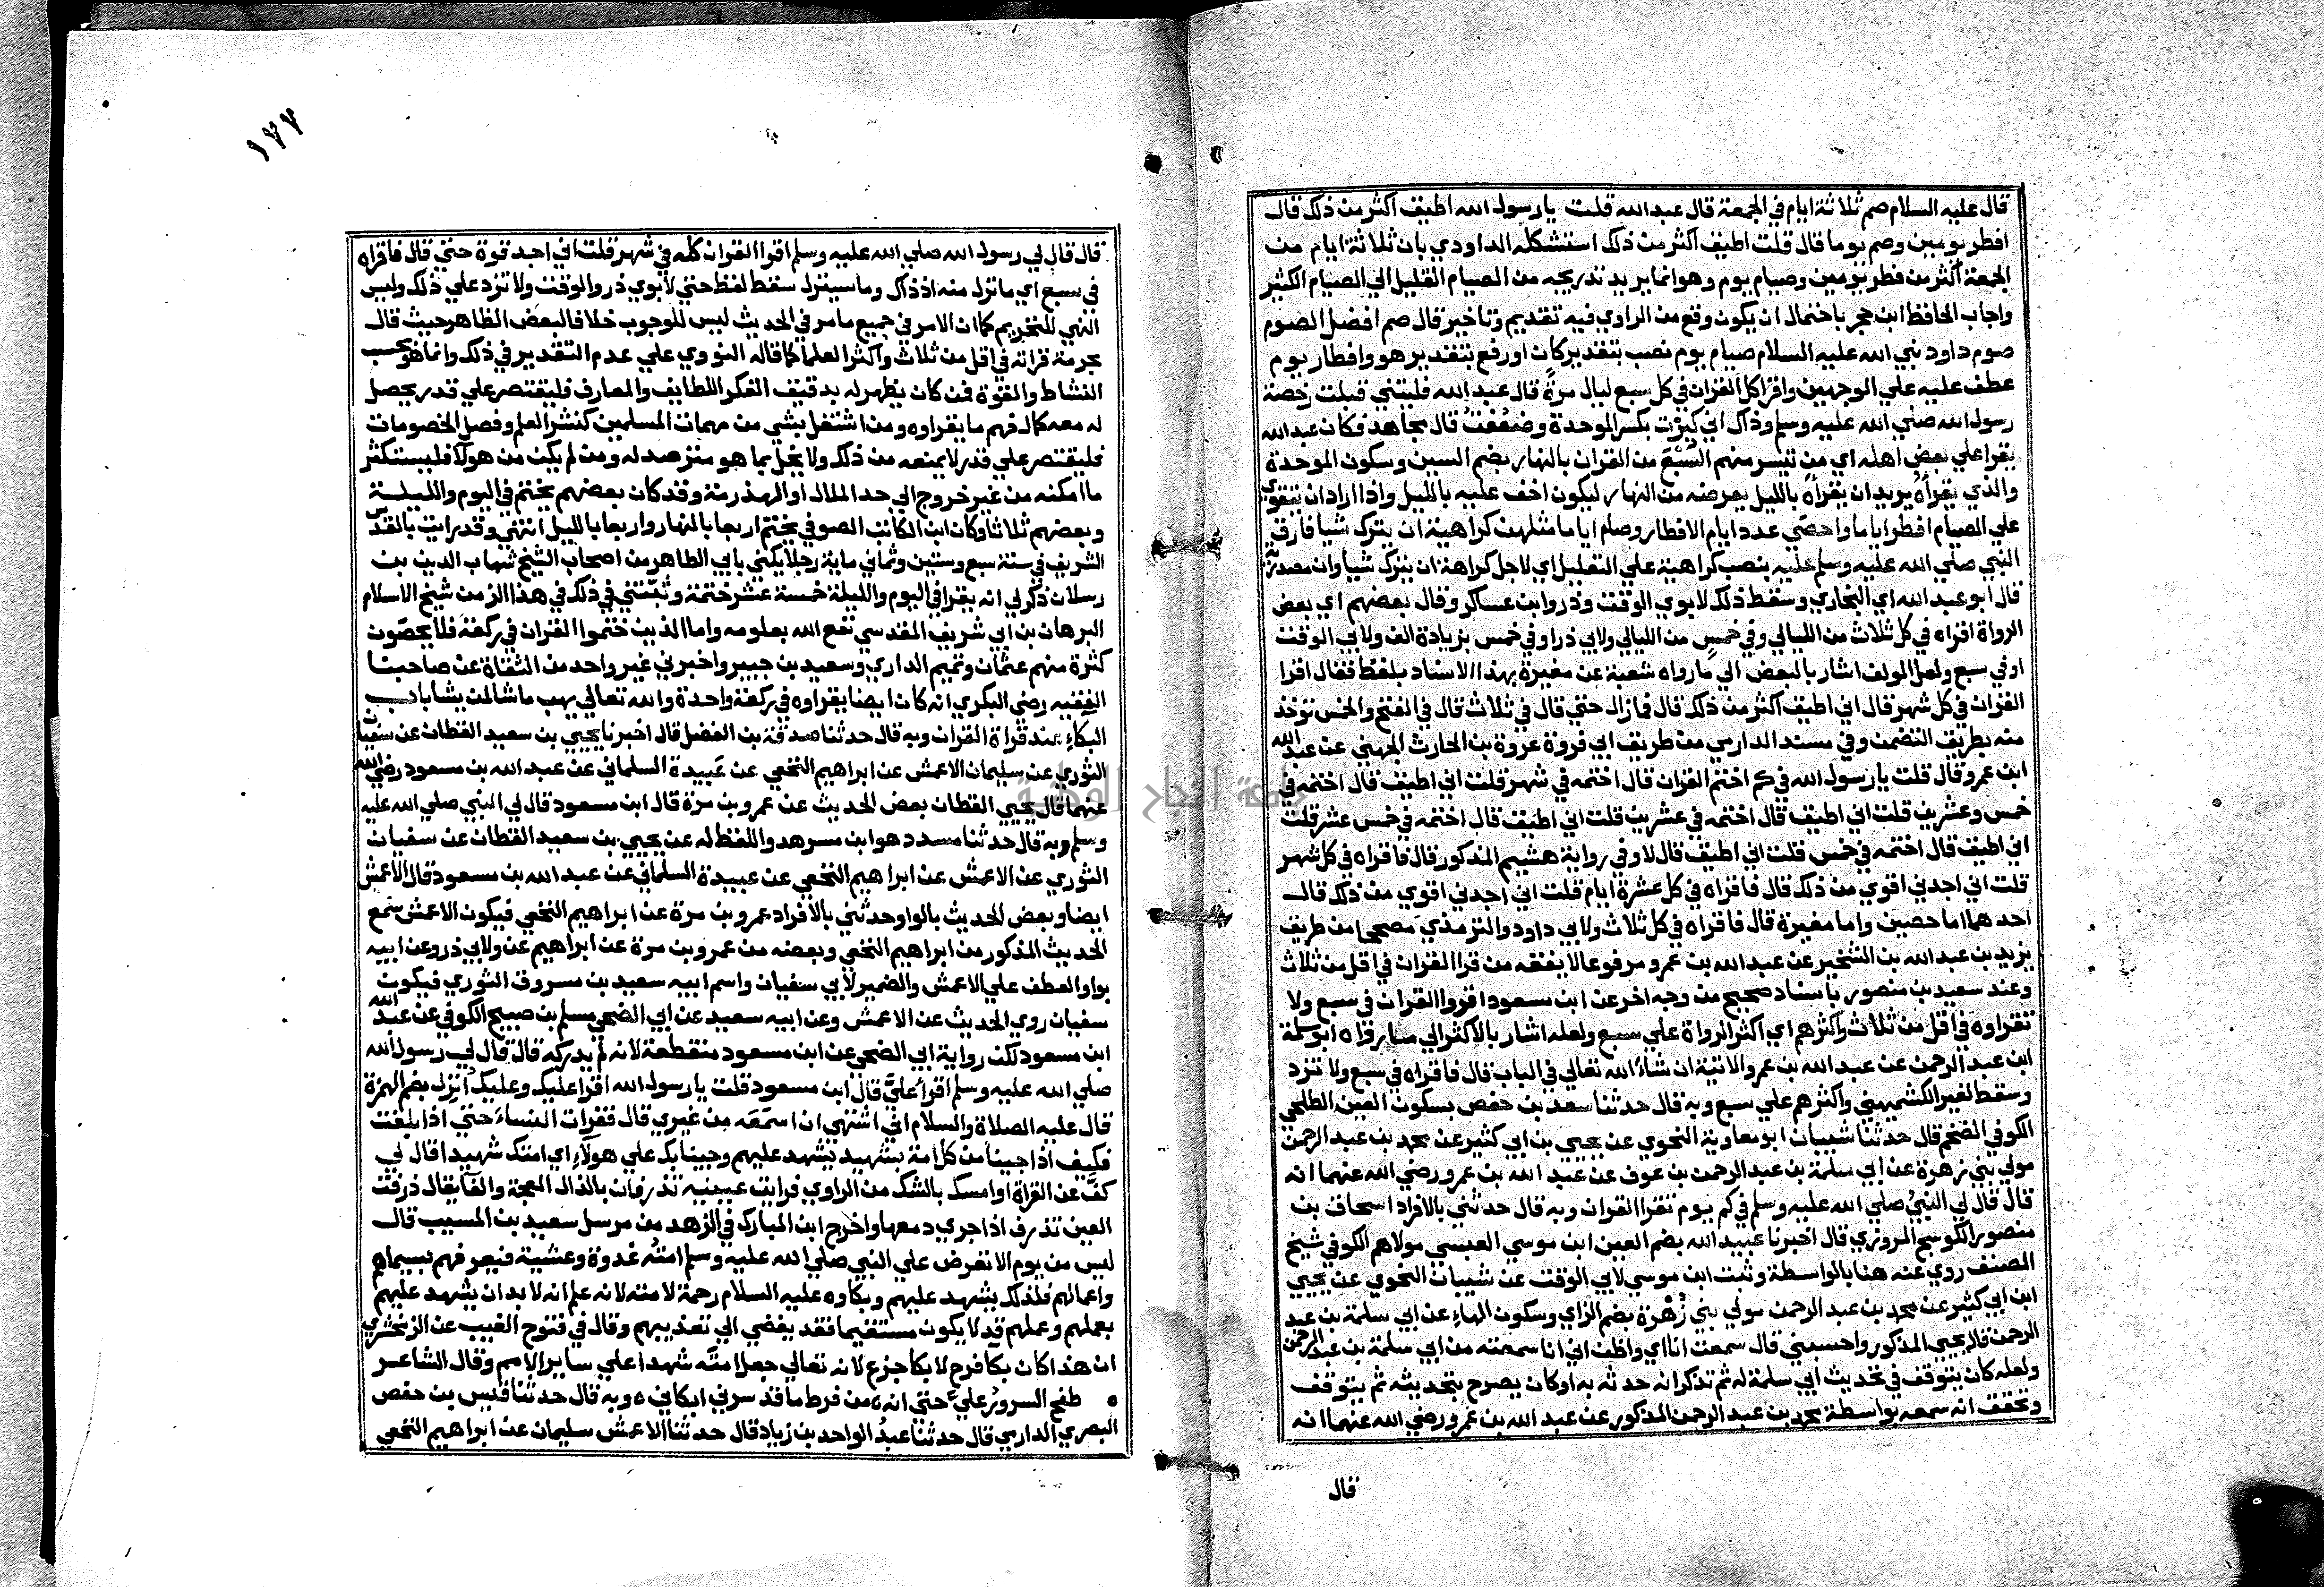 قال عليه السلام صم ثلاثة ايام في الجمعة قال عبد الله قلت يا رسول الله اطيق اكثر من ذلك قال
افطر يومين وصم يوما قال قلت اطيق اكثر من ذلك استشكله الداودي بان ثلاثة ايام من
الجمعة اكثر من فطر يومين وصيام يوم وهو انما يريد تدريجه من الصيام القليل الي الصيام الكثير
واجاب الحافظ ابن حجر باحتمال ان يكون وقع من الراوي فيه تقديم وتاخير قال صم افضل الصوم
صوم داود نبي الله عليه السلام صيام يوم نصب بتقدير كان او رفع بتقدير هو وافطار يوم
عطف عليه علي الوجهين واقرا كل القران في كل سبع ليال مرة قال عبد الله فليتني قبلت رخصة
رسول الله صلي الله عليه وسلم وذاك اني كبرت بكسر الموحدة وضعفت قال مجاهد فكان عبد الله
يقرا علي بعض اهله اي من تيسر منهم السبع من القران بالنهار بضم السين وسكون الموحدة
والذي يقراه يريد ان يقراه بالليل يعرضه من النهار ليكون اخف عليه بالليل واذا اراد ان يتقوي
علي الصيام افطر اياما واحصي عدد ايام الافطار وصام اياما مثلهن كراهية ان يترك شيا فارق
النبي صلي الله عليه وسلم عليه بنصب كراهية علي التعليل اي لاجل كراهة ان يترك شيا وان مصدرية
قال ابو عبد الله اي البخاري وسقط ذلك لابوي الوقت وذر وابن عساكر وقال بعضهم اي بعض
الرواة اقراه في كل ثلاث من الليالي وفي خمس من الليالي ولابي ذر او في خمس بزيادة الف ولابي الوقت
او في سبع ولعل المولف اشار بالبعض الي ما رواه شعبة عن مغيرة بهذا الاسناد بلفظ فقال اقرا
القران في كل شهر قال اني اطيق اكثر من ذلك قال فما زال حتي قال في ثلاث قال في الفتح والخمس توخذ
منه بطريق التضمن وفي مسند الدارمي من طريق ابي فروة عروة بن الحارث الجهني عن عبد الله
ابن عمرو قال قلت يا رسول الله في كم اختم القران قال اختمه في شهر قلت اني اطيق قال اختمه في
خمس وعشرين قلت اني اطيق قال اختمه في عشرين قلت اني اطيق قال اختمه في خمس عشر قلت
اني اطيق قال اختمه في خمس قلت اني اطيق قال لا وفي رواية هشيم المذكور قال فاقراه في كل شهر
قلت اني اجدني اقوي من ذلك قال فاقراه في كل عشرة ايام قلت اني اجدني اقوي من ذلك قال
احدهما اما حصين واما مغيرة قال فاقراه في كل ثلاث ولابي داود والترمذي مصححا من طريق
يزيد بن عبد الله بن الشخير عن عبد الله بن عمرو مرفوعا لا يفقه من قرا القران في اقل من ثلاث
وعند سعيد بن منصور باسناد صحيح من وجه اخر عن ابن مسعود اقروا القران في سبع ولا
تقراوه في اقل من ثلاث واكثرهم اي اكثر الرواة علي سبع ولعله اشار بالاكثر الي ما رواه ابو سلمة
ابن عبد الرحمن عن عبد الله بن عمرو الاتية ان شاء الله تعالي في الباب قال فاقراه في سبع ولا تزد
وسقط لغير الكشميهني واكثرهم علي سبع وبه قال حدثنا سعد بن حفص بسكون العين الطلحي
الكوفي الضخم قال حدثنا شيبان ابو معاوية النحوي عن يحيي بن ابي كثير عن محمد بن عبد الرحمن
مولي بني زهرة عن ابي سلمة بن عبد الرحمن بن عوف عن عبد الله بن عمرو رضي الله عنهما انه
قال قال لي النبي صلي الله عليه وسلم في كم يوم تقرا القران وبه قال حدثني بالافراد اسحاق بن
منصور الكوسج المروزي قال اخبرنا عبيد الله بضم العين ابن موسي العبسي مولاهم الكوفي شيخ
المصنف روي عنه هنا بالواسطة وثبت ابن موسي لابي الوقت عن شيبان النحوي عن يحيي
ابن ابي كثير عن محمد بن عبد الرحمن مولي بني زهرة بضم الزاي وسكون الهاء عن ابي سلمة بن عبد
الرحمن قال يحيي المذكور واحسبني قال سمعت انا اي واظن اني انا سمعته من ابي سلمة بن عبد الرحمن
ولعله كان يتوقف في تحديث ابي سلمة له ثم تذكر انه حدثه به او كان يصرح بتحديثه ثم يتوقف
وتحقق انه سمعه بواسطة محمد بن عبد الرحمن المذكور عن عبد الله بن عمرو رضي الله عنهما انه
قال
١٧٧
قال قال لي رسول الله صلي الله عليه وسلم اقرا القران كله في شهر قلت اني اجد قوة حتي قال فاقراه
في سبع اي ما نزل منه اذ ذاك وما سينزل سقط لفظ حتي لابوي ذر والوقت ولا تزد علي ذلك وليس
النهي للتحريم كما ان الامر في جميع ما مر في الحديث ليس للوجوب خلافا لبعض الظاهر حيث قال
بحرمة قراته في اقل من ثلاث واكثر العلما كما قاله النووي علي عدم التقدير في ذلك وانما هو بحسب
النشاط والقوة فمن كان يظهر له بدقيق الفكر اللطايف والمعارف فليقتصر علي قدر يحصل
له معه كمال فهم ما يقراوه ومن اشتغل بشي من مهمات المسلمين كنشر العلم وفصل الخصومات
فليقتصر علي قدر لا يمنعه من ذلك ولا يخل بما هو مترصد له ومن لم يكن من هولا فليستكثر
ما امكنه من غير خروج الي حد الملال او الهذرمة وقد كان بعضهم يختم في اليوم والليلة
وبعضهم ثلاثا وكان ابن الكاتب الصوفي يختم اربعا بالنهار واربعا بالليل انتهي وقد رايت بالقدس
الشريف في سنة سبع وستين وثماني ماية رجلا يكني بابي الطاهر من اصحاب الشيخ شهاب الدين بن
رسلان ذكر لي انه يقرا في اليوم والليلة خمسة عشر ختمة وثبتني في ذلك في هذا الزمن شيخ الاسلام
البرهان بن ابي شريف المقدسي نفع الله بعلومه واما الذين ختموا القران في ركعة فلا يحصون
كثرة منهم عثمان وتميم الداري وسعيد بن جبير واخبرني غير واحد من الثقاة عن صاحبنا
الفقيه رضي البكري انه كان ايضا يقراوه في ركعة واحدة والله تعالي يهب ما شا لمن يشا باب
البكاء عند قراة القران وبه قال حدثنا صدقة بن الفضل قال اخبرنا يحيي بن سعيد القطان عن سفيان
الثوري عن سليمان الاعمش عن ابراهيم النخعي عن عبيدة السلماني عن عبد الله بن مسعود رضي الله
عنهما قال يحيي القطان بعض الحديث عن عمرو بن مرة قال ابن مسعود قال لي النبي صلي الله عليه
وسلم وبه قال حدثنا مسدد هو ابن مسرهد واللفظ له عن يحيي بن سعيد القطان عن سفيان
الثوري عن الاعمش عن ابراهيم النخعي عن عبيدة السلماني عن عبد الله بن مسعود قال الاعمش
ايضا وبعض الحديث بالواو حدثني بالافراد عمرو بن مرة عن ابراهيم النخعي فيكون الاعمش سمع
الحديث المذكور من ابراهيم النخعي وبعضه من عمرو بن مرة عن ابراهيم عن ولابي ذر وعن ابيه
بواو العطف علي الاعمش والضمير لابي سفيان واسم ابيه سعيد بن مسروق الثوري فيكون
سفيان روي الحديث عن الاعمش وعن ابيه سعيد عن ابي الضحي مسلم بن صبيح الكوفي عن عبد الله
ابن مسعود لكن رواية ابي الضحي عن ابن مسعود منقطعة لانه لم يدركه قال قال لي رسول الله
صلي الله عليه وسلم اقرا علي قال ابن مسعود قلت يا رسول الله اقرا عليك وعليك انزل بضم الهمزة
قال عليه الصلاة والسلام اني اشتهي ان اسمعه من غيري قال فقرات النساء حتي اذا بلغت
فكيف اذا جينا من كل امة بشهيد يشهد عليهم وجينا بك علي هولاء اي امتك شهيدا قال لي
كف عن القراة او امسك بالشك من الراوي فرايت عينيه تذرفان بالذال المعجمة والفا يقال ذرفت
العين تذرف اذا جري دمعها واخرج ابن المبارك في الزهد من مرسل سعيد بن المسيب قال
ليس من يوم الا تعرض علي النبي صلي الله عليه وسلم امته غدوة وعشية فيعرفهم بسيماهم
واعمالهم فلذلك يشهد عليهم وبكاوه عليه السلام رحمة لامته لانه علم انه لا بد ان يشهد عليهم
بعملهم وعملهم قد لا يكون مستقيما فقد يفضي الي تعذيبهم وقال في فتوح الغيب عن الزمخشري
ان هذا كان بكا فرح لا بكا جزع لانه تعالي جعل امته شهدا علي ساير الامم وقال الشاعر
ه طفح السرور علي حتي انه ه من فرط ما قد سرني ابكاني ه وبه قال حدثنا قيس بن حفص
البصري الدارمي قال حدثنا عبد الواحد بن زياد قال حدثنا الاعمش سليمان عن ابراهيم النخعي
جامعة النجاح الوطنية